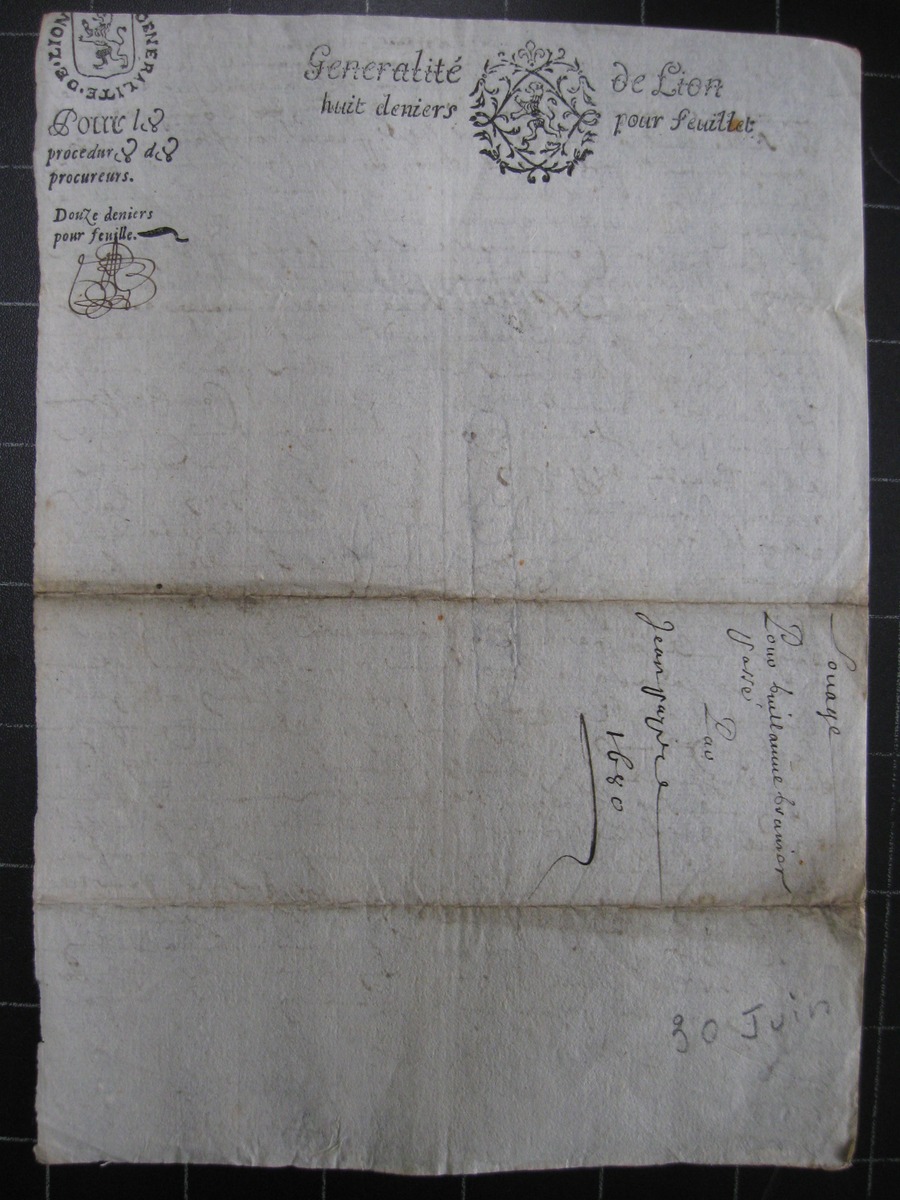 GENERALITE·DE·LION
Pour les
procedures des
procureurs.
Douze deniers
pour feuille.
Generalité de Lion
huit deniers pour feuillet.
Louage
Pour guillaume
passé
Par
Jean
1680
30 Juin